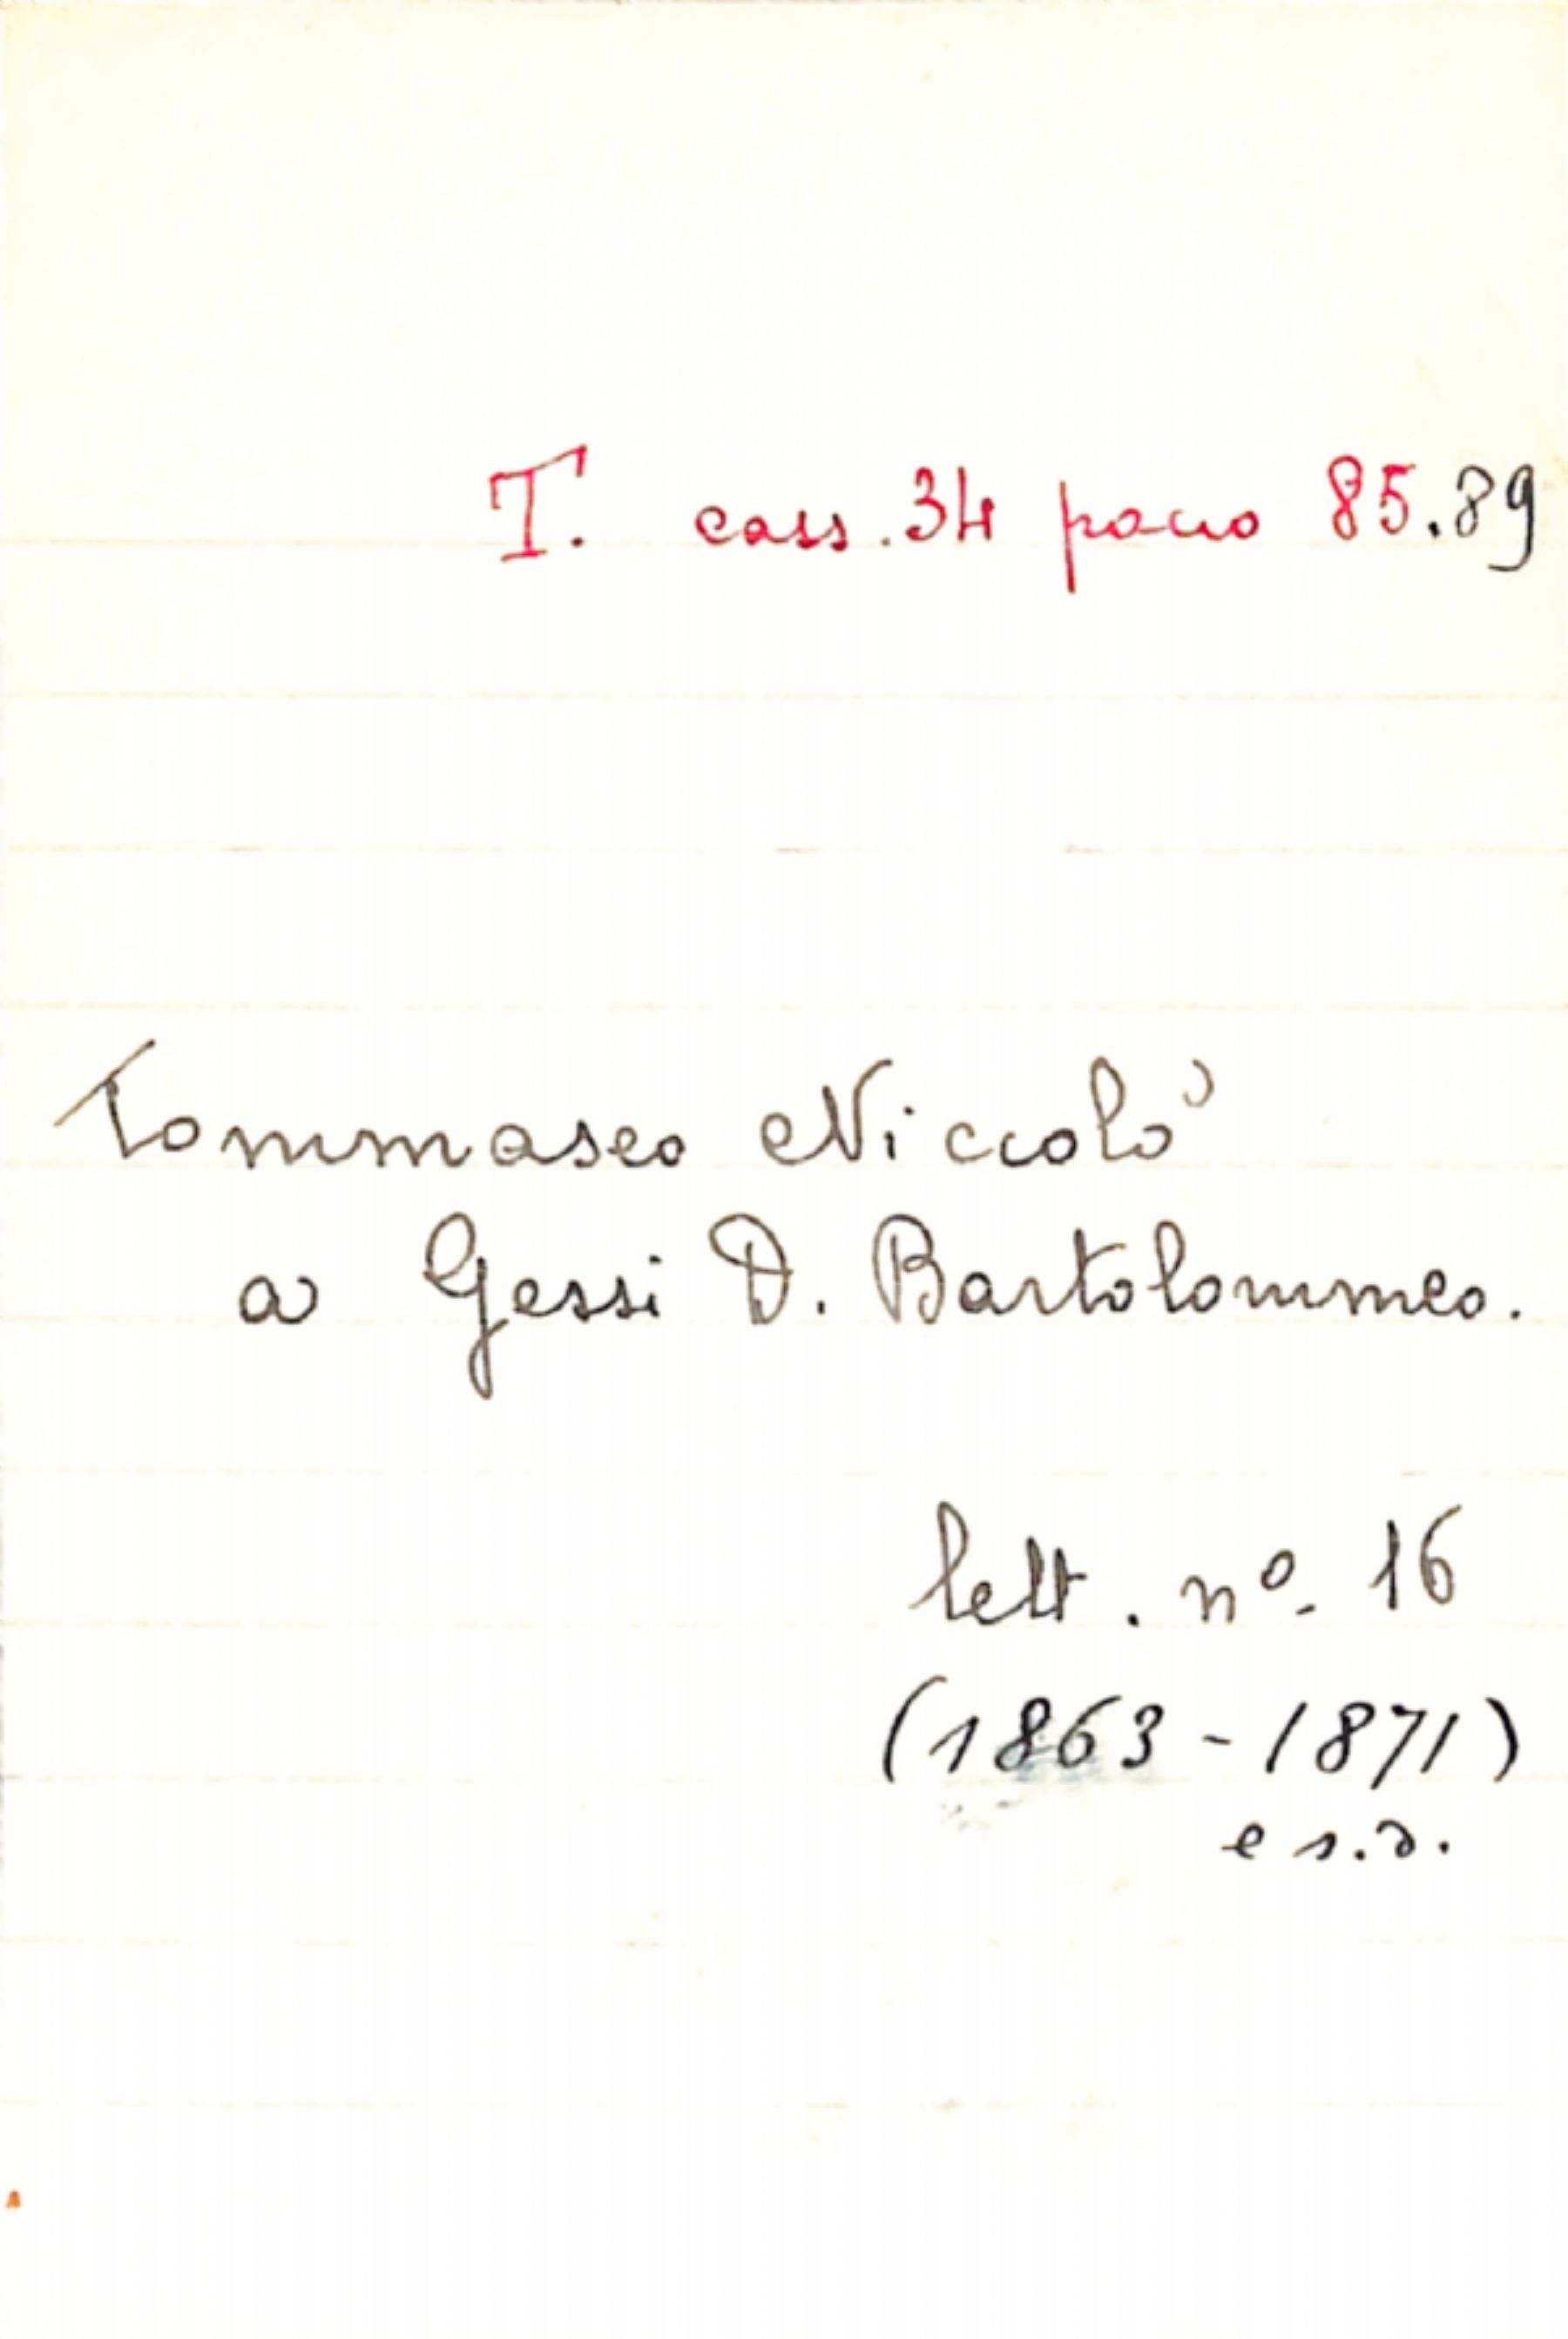 T. cass. 34 pacco 85.89
Tommaseo Niccolò
a Gessi D. Bartolommeo.
lett. nº. 16
(1863 - 1871)
e s.d.